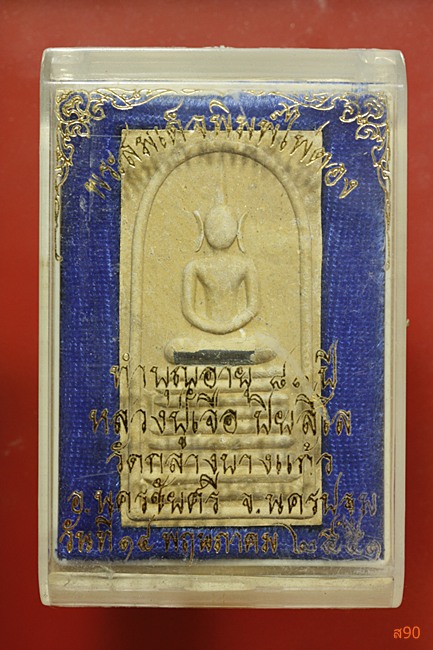 พระสมเด็จพิมพ์ไพ่ตอง
ทำบุญอายุ ๘๓ ปี
หลวงปู่เจือ ปิยสีโล
วัดกลางบางแก้ว
อ.นครชัยศรี จ.นครปฐม
วันที่ ๑๕ พฤษภาคม ๒๕๕๑
ส90